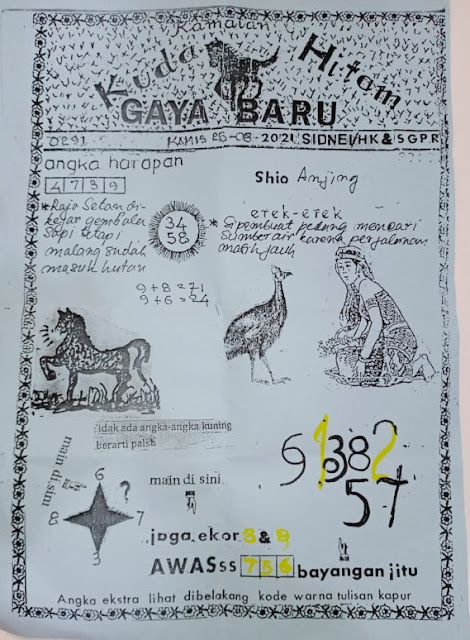 Ramalan
Kuda Hitam
GAYA BARU
0291 KAMIS 26-08-2021 SIDNEI/HK & SGPR
angka harapan
4 7 3 9
Shio Anjing
*Rajo Setan di-
kejar gembala
Sapi tetapi
malang sudah
masuk hutan
34
58
erek-erek
* Sipembuat pedang mencari
Sumber air karena perjalanan
masih jauh
9+8=71
9+6=24
idak ada angka-angka kuning
berarti palsb
main di sini
6
?
8 7
3
main di sini
6 1382
57
joga ekor 8 & 9
AWASss 756 bayangan jitu
Angka ekstra lihat dibelakang kode warna tulisan kapur